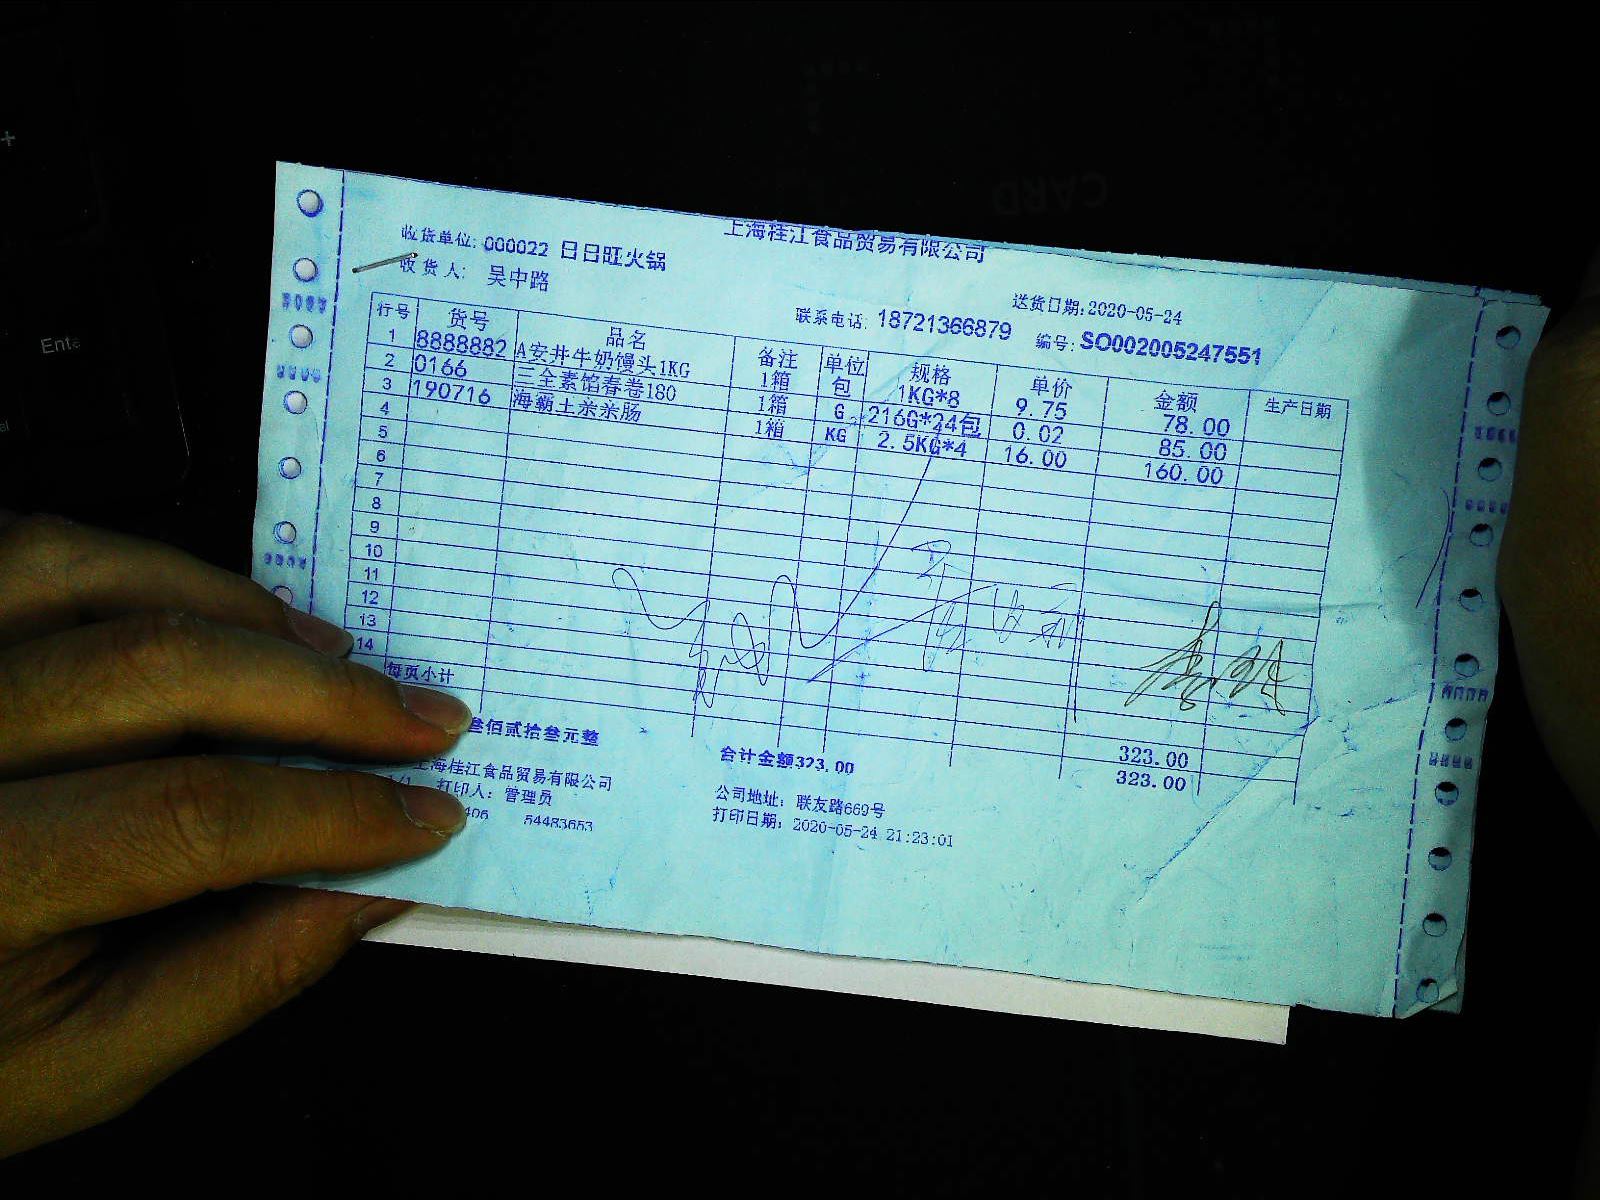 上海桂江食品贸易有限公司
收货单位: 000022 日日旺火锅
收货人: 吴中路
送货日期:2020-05-24
联系电话: 18721366879 编号: SO002005247551
行号 货号 品名 备注 单位 规格 单价 金额 生产日期
1 8888882 A安井牛奶馒头1KG 1箱 包 1KG*8 9.75 78.00
2 0166 三全素馅春卷180 1箱 G 216G*24包 0.02 85.00
3 190716 海霸土亲亲肠 1箱 KG 2.5KG*4 16.00 160.00
4
5
6
7
8
9
10
11
12
13
14
323.00
每页小计 323.00
叁佰贰拾叁元整 合计金额323.00
上海桂江食品贸易有限公司 公司地址: 联友路669号
1/1 打印人: 管理员 打印日期: 2020-05-24 21:23:01
406 54483653
Ente
CARD